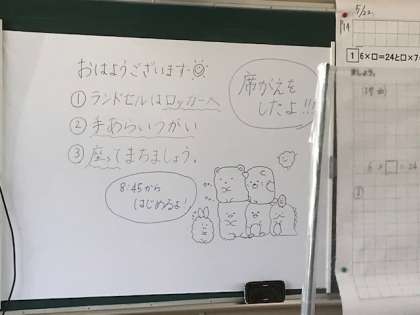 おはようございます
①ランドセルはロッカーへ
②手あらいうがい
③座ってまちましょう。
席がえを
したよ!!!
8:45から
はじめるよ!
5/22
1 6×□=24と□×7=
ましょう。
6×□=24
①